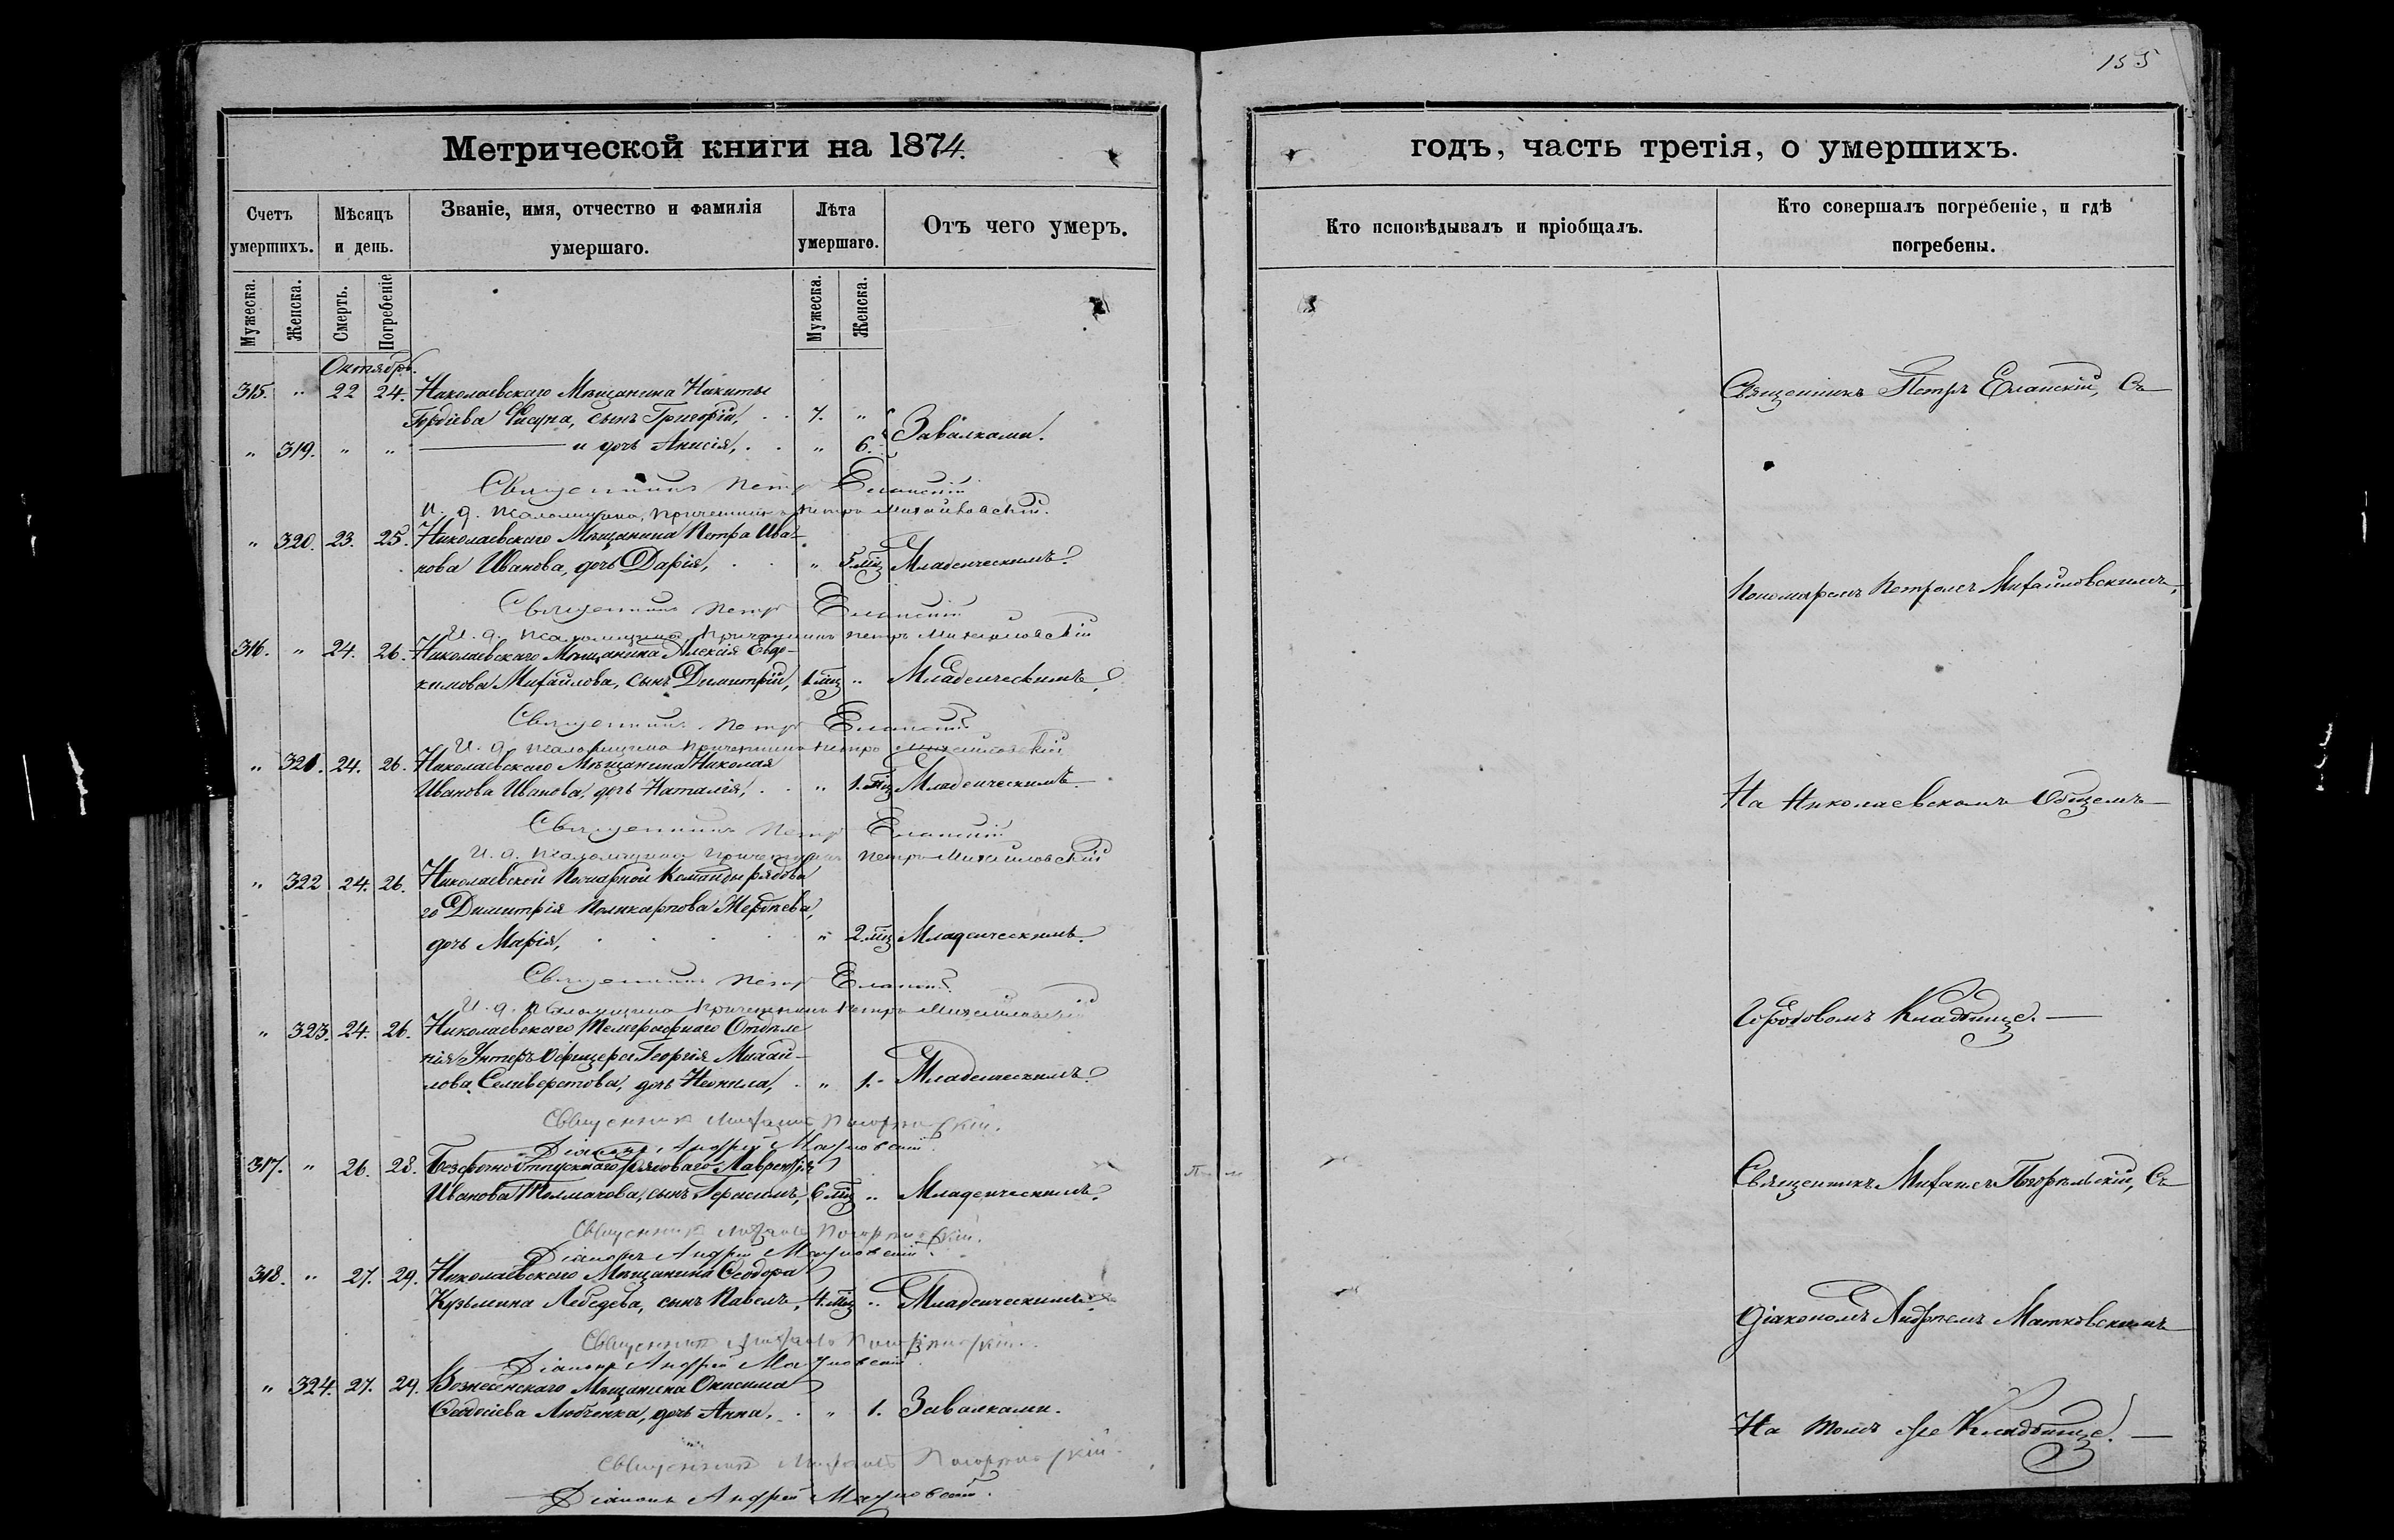 155
Метрической книги на 1874.
годъ, часть третія, о умершихъ.
Счетъ умершихъ.
Мѣсяцъ и день.
Званіе, имя, отчество и фамилія умершаго.
Лѣта умершаго.
Отъ чего умеръ.
Кто исповѣдывалъ и пріобщалъ.
Кто совершалъ погребеніе, и гдѣ погребены.
Мужеска. Женска. Смерть. Погребеніе Мужеска. Женска.
Октябрь.
315. " 22 24. Николаевскаго Мѣщанина Никиты
Гордіева сынъ Григорій, 7. "
" 319. " " и дочь Анисія, " 6. Завалками.
Священникъ Петръ Еланскій
И. д. псаломщика, причетникъ Петръ Михайловскій.
" 320. 23. 25. Николаевскаго Мѣщанина Петра Ива-
нова Иванова, дочь Дарія, " 5 мѣц Младенческимъ.
Священникъ Петръ Еланскій
И. д. псаломщика, причетникъ Петръ Михайловскій
316. " 24. 26. Николаевскаго Мѣщанина Алексія Евдо-
кимова Михайлова, сынъ Димитрій, 1 мѣц " Младенческимъ.
Священникъ Петръ Еланскій
И. д. псаломщика причетникъ Петръ Михайловскій
" 321. 24. 26. Николаевскаго Мѣщанина Николая
Иванова Иванова, дочь Наталія, " 1. мѣц Младенческимъ.
Священникъ Петръ Еланскій
И. д. псаломщика причетникъ Петръ Михайловскій
" 322 24. 26. Николаевской Пожарной Команды рядова
го Димитрія Поликарпова Жердѣева,
дочь Марія, " 2 мѣц Младенческимъ.
Священникъ Петръ Еланскій
И. д. псаломщика причетникъ Петръ Михайловскій
" 323. 24. 26. Николаевскаго Телеграфнаго Отдѣле
нія Унтеръ Офицера Георгія Михай-
лова Селиверстова, дочь Неонила, " 1. - Младенческимъ.
Священникъ Михаилъ Погорѣльскій.
Діаконъ Андрей Матковскій.
317. " 26. 28. Безсрочноотпускнаго рядоваго Лаврентія
Иванова Толмачова, сынъ Герасимъ, 6 мѣц " Младенческимъ.
Священникъ Михаилъ Погорѣльскій.
Діаконъ Андрей Матковскій.
318. " 27. 29. Николаевскаго Мѣщанина Ѳеодора
Кузьмина Лебедева, сынъ Павелъ, 4. мѣц " Младенческимъ.
Священникъ Михаилъ Погорѣльскій.
Діаконъ Андрей Матковскій
" 324. 27. 29. Вознесенскаго Мѣщанина Онисима
Ѳаддѣева Любченка, дочь Анна. " 1. Завалками.
Священникъ Михаилъ Погорѣльскій.
Діаконъ Андрей Матковскій.
Священникъ Петръ Еланскій, Съ
Пономаремъ Петромъ Михайловскимъ,
На Николаевскомъ Общемъ
Городовомъ Кладбище.
Священникъ Михаилъ Погорѣльскій, Съ
Діакономъ Андреемъ Матковскимъ
На томъ же Кладбище.